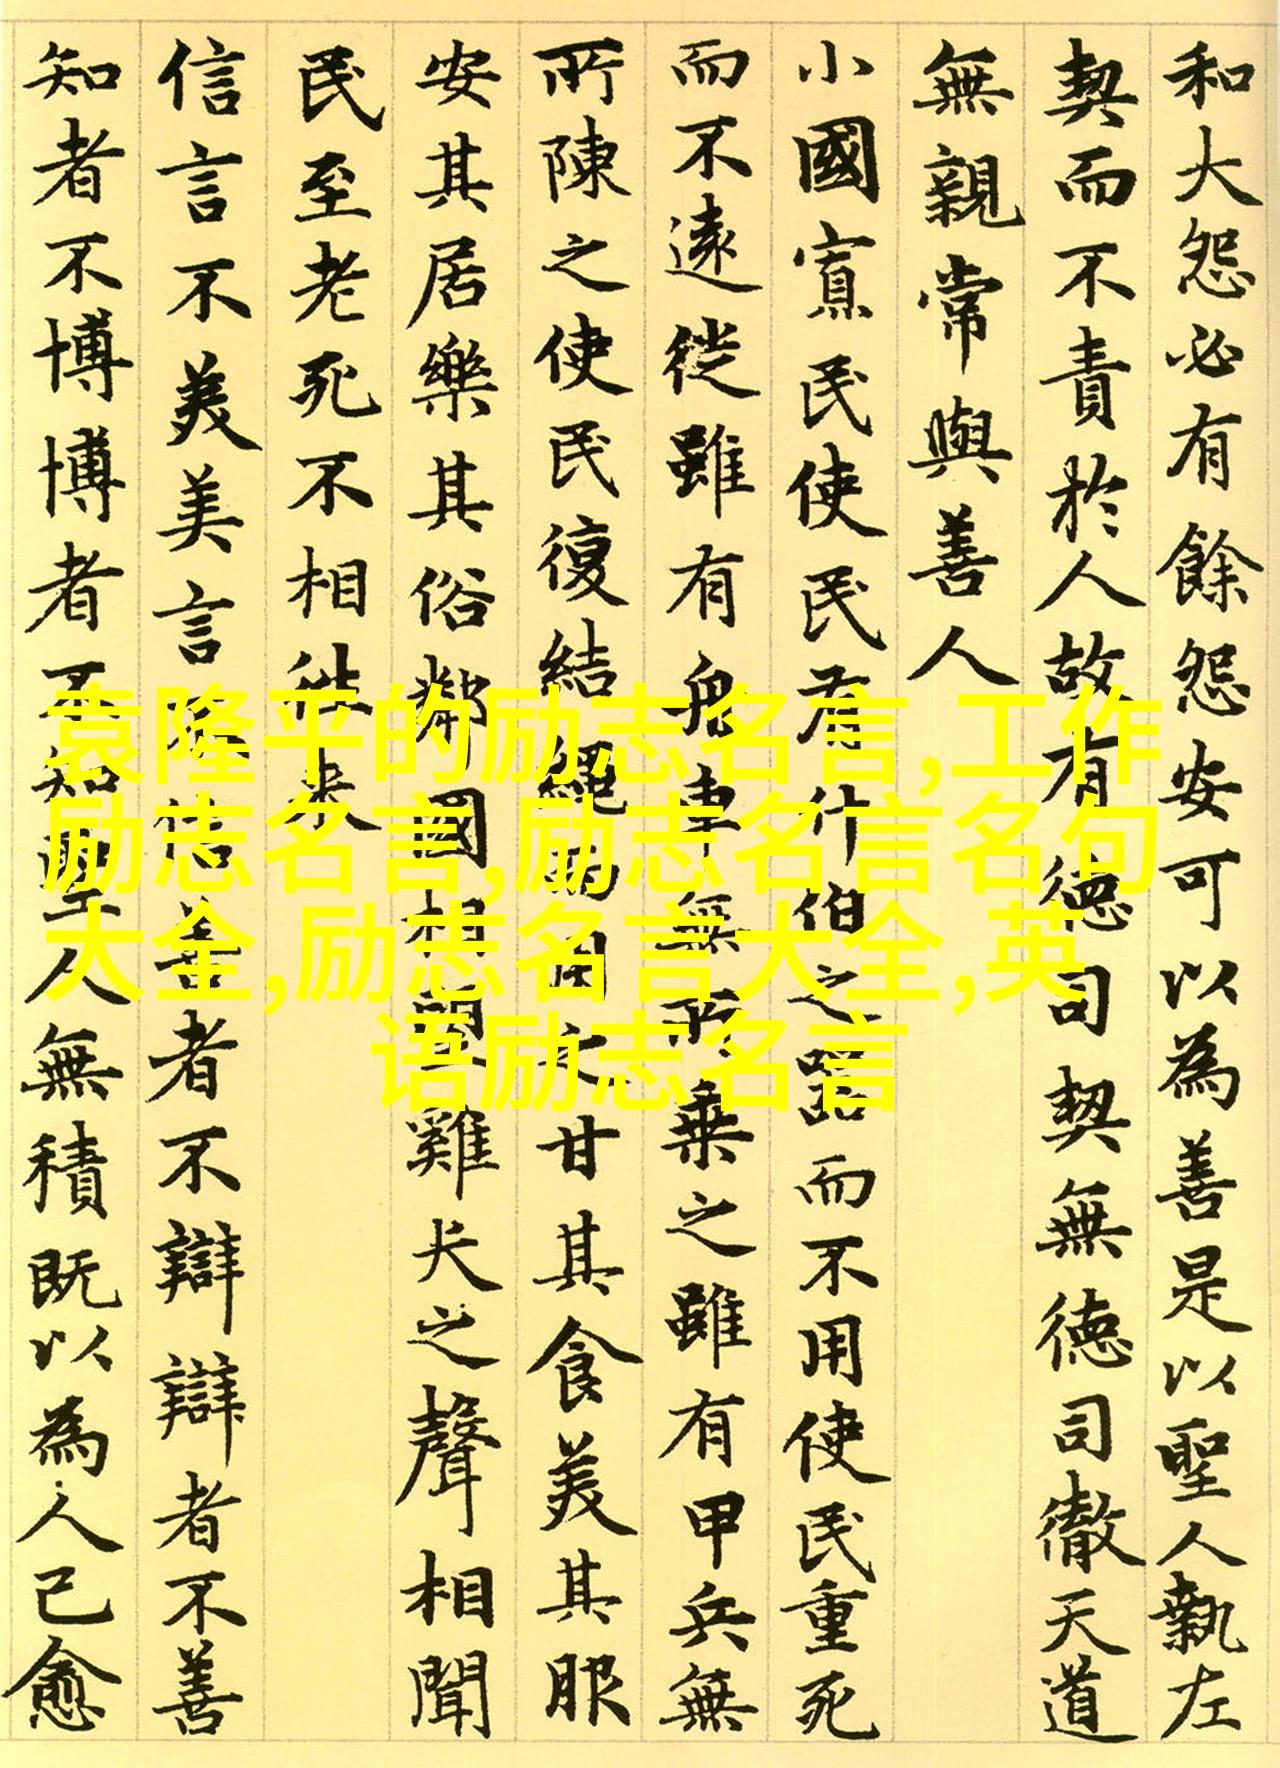 和大怨必有餘怨安可以為善是以聖人執左
契而不責於人故有德司契無德司徹天道
無親常與善人
小國寡民使民有什伯之器而不用使民重死
而不遠徙雖有舟車無所乘之雖有甲兵無
所陳之使民復結繩而用之甘其食美其服
安其居樂其俗鄰國相望雞犬之聲相聞
民至老死不相往来
信言不美美言不信善者不辯辯者不善
知者不博博者不知聖人無積既以為人己愈
袁隆平的励志名言,工作
励志名言,励志名言名句
大全,励志名言大全,英
语励志名言